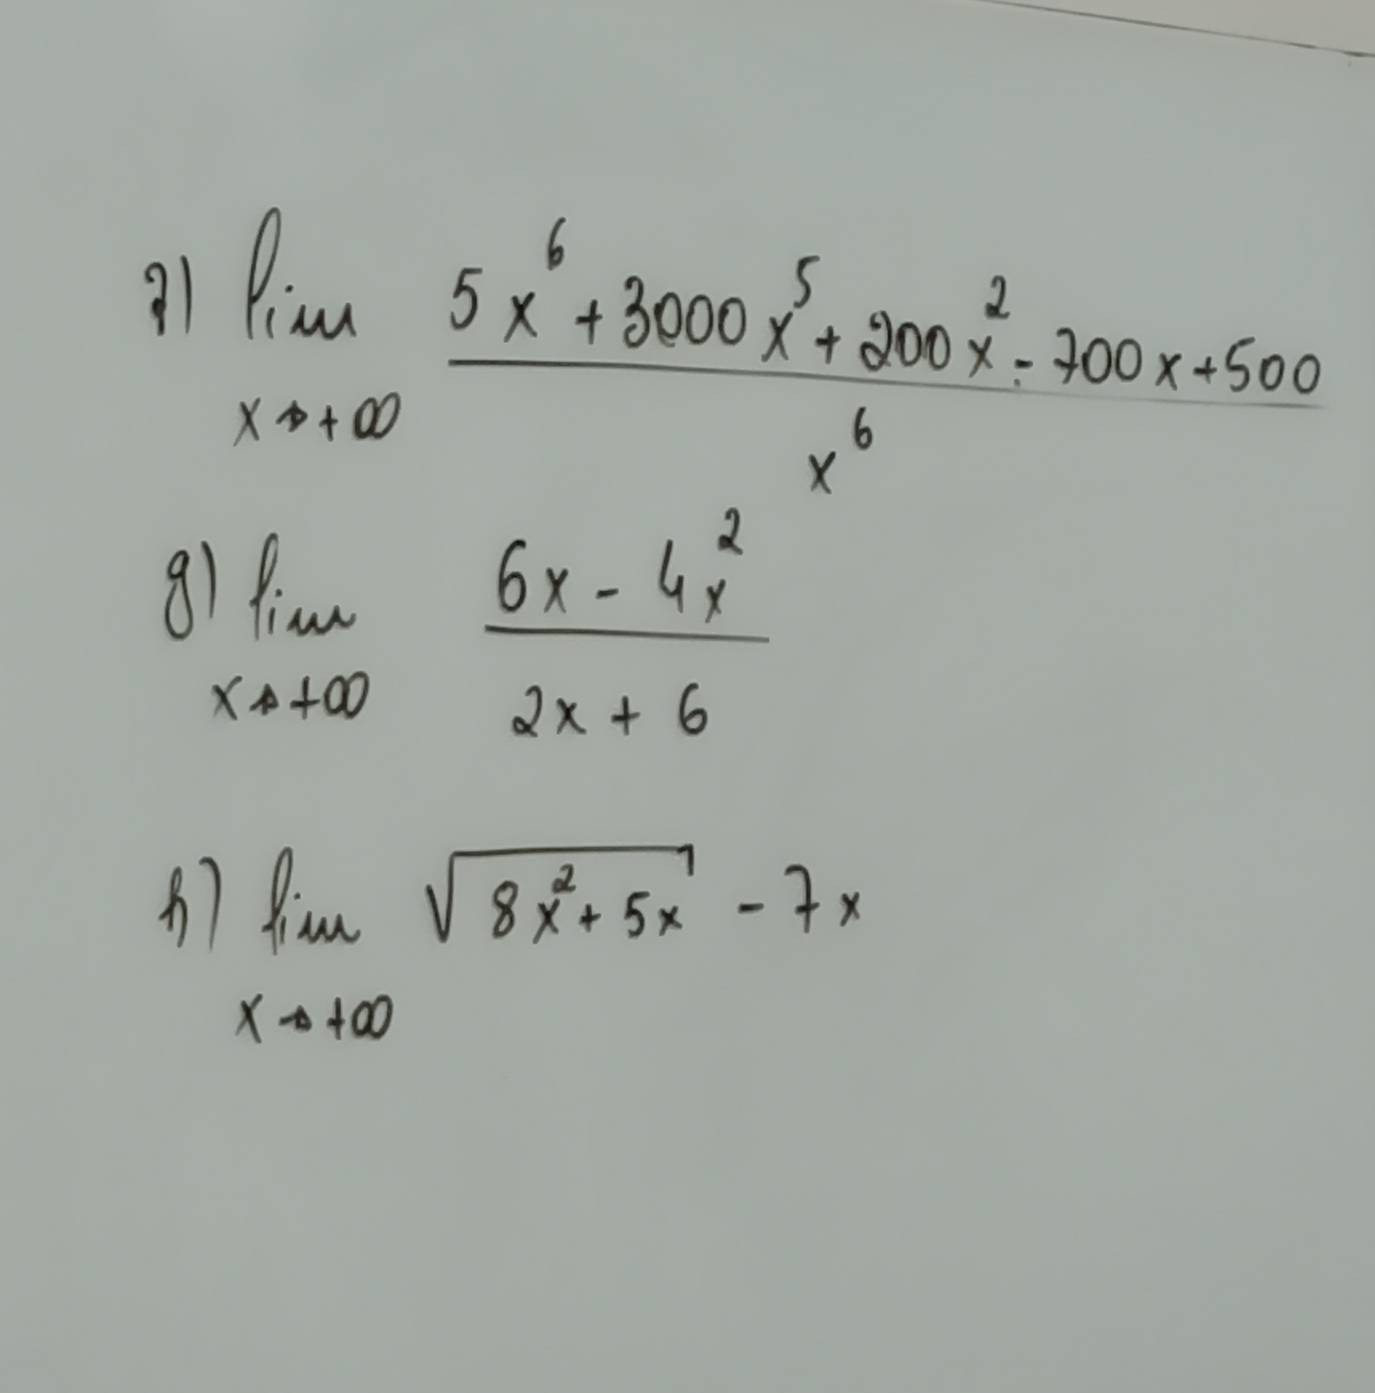 a) lim 5x⁶ + 3000x⁵ + 200x² - 700x + 500
x → +∞ x⁶
g) lim 6x - 4x²
x → +∞ 2x + 6
h) lim √(8x² + 5x) - 7x
x → +∞